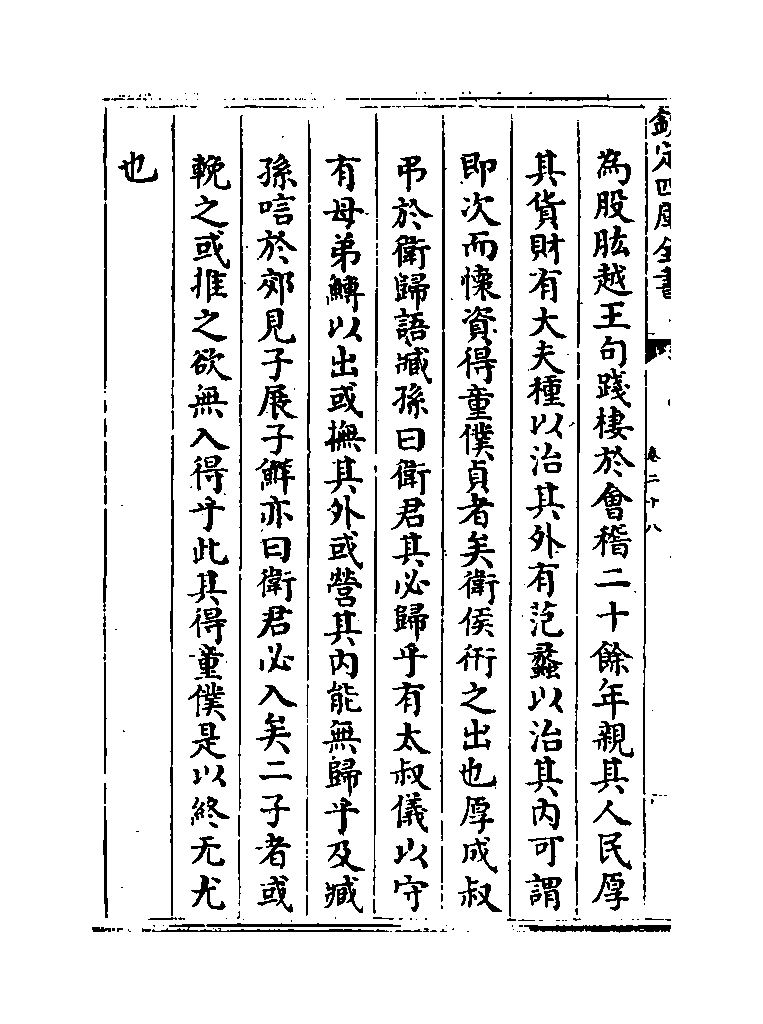 欽定四庫全書
卷二十八
為股肱越王句踐棲於會稽二十餘年親其人民厚
其貨財有大夫種以治其外有范蠡以治其内可謂
即次而懐資得童僕貞者矣衛侯衎之出也厚成叔
弔於衛歸語臧孫曰衛君其必歸乎有太叔儀以守
有母弟鱄以出或撫其外或營其内能無歸乎及臧
孫唁於郊見子展子鮮亦曰衛君必入矣二子者或
輓之或推之欲無入得乎此其得童僕是以終无尤
也